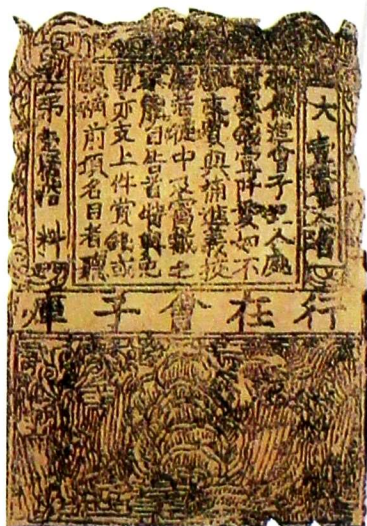 大壹貫文省
偽造會子犯人處
賞錢壹阡貫如不
支賞與補進義校
徒中及窩藏之
能自告首特與免
罪亦支上件賞錢或
願補前項名目者聽
第壹佰拾料
行在會子庫